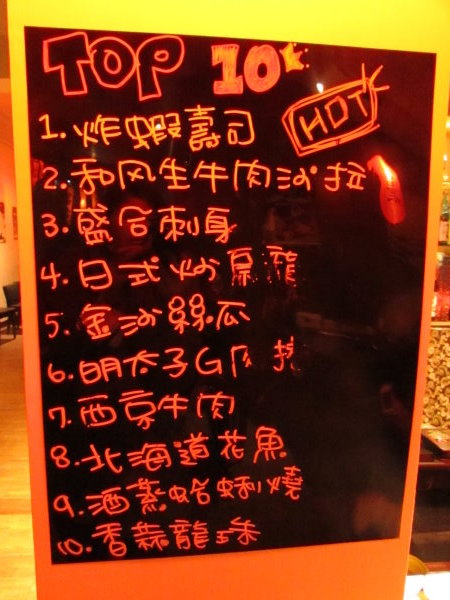 TOP 10
HOT
1. 炸蝦壽司
2. 和风生牛肉沙拉
3. 綜合刺身
4. 日式炒烏龍
5. 金沙瓜
6. 明太子
7. 西京牛肉
8. 北海道花魚
9. 酒蒸蛤蜊
10. 香蒜龍珠